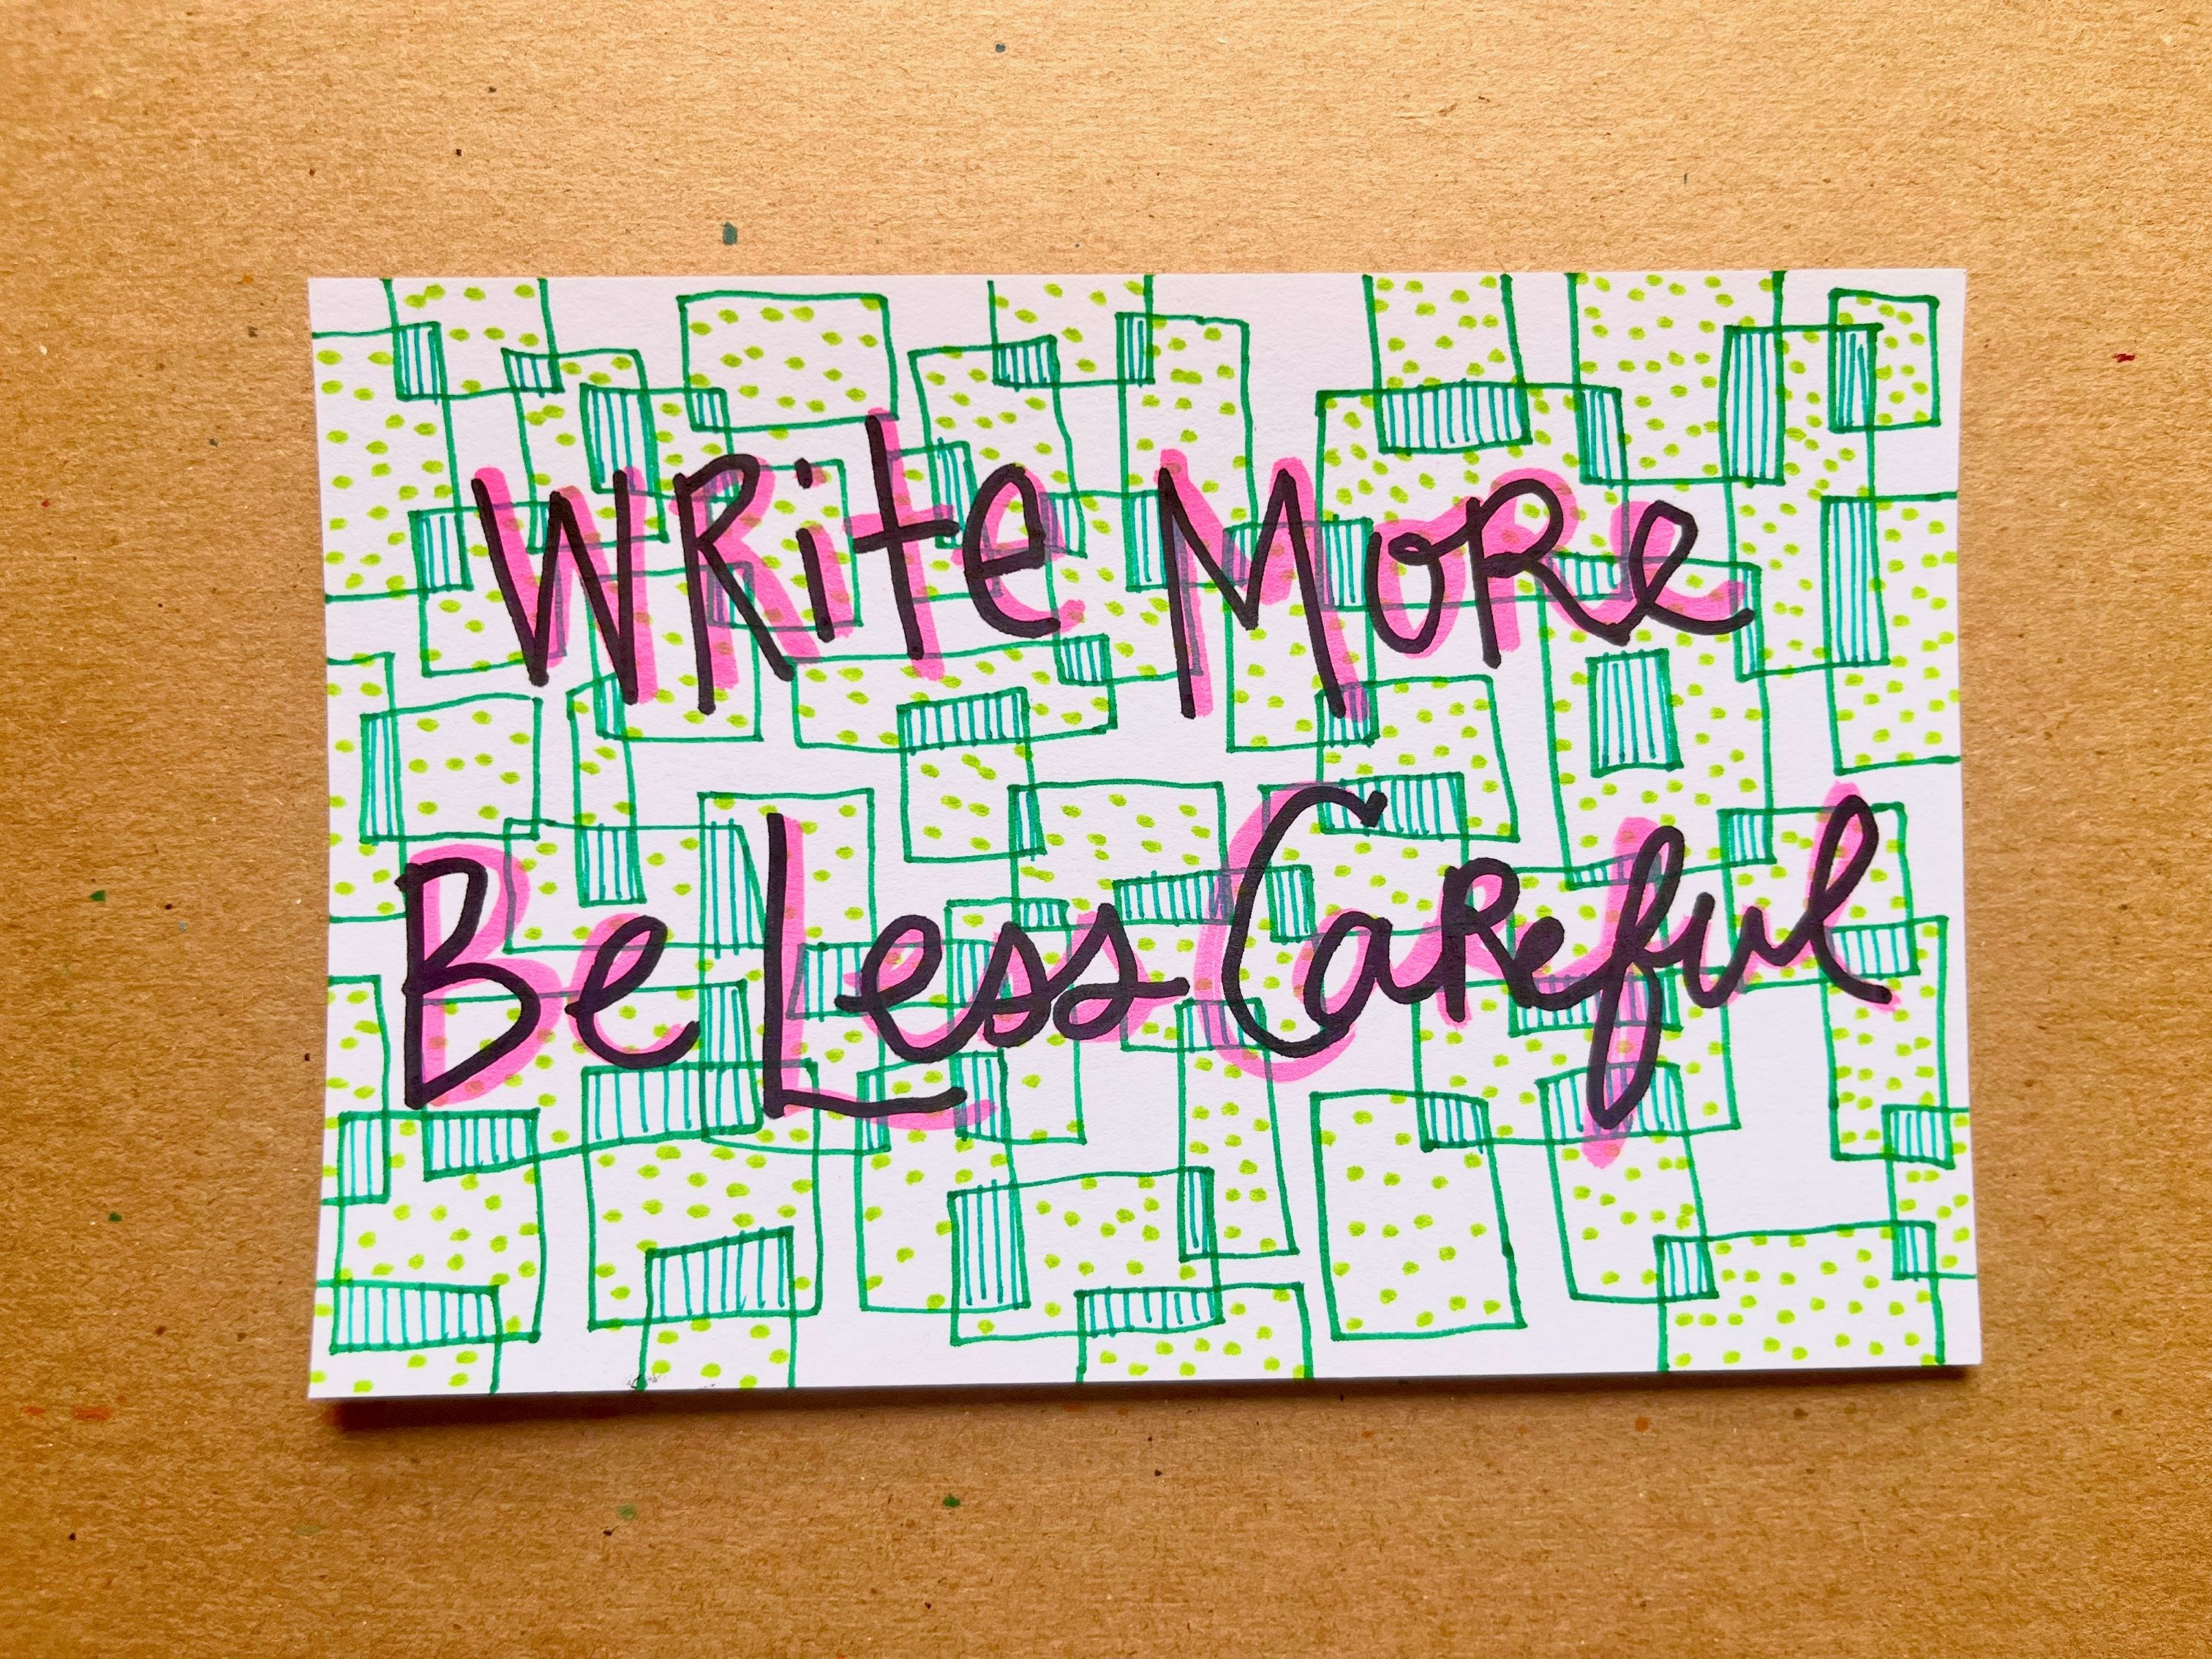 Write More
Be Less Careful